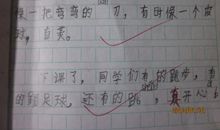 像一把弯弯的刀，有时像一个皮
球，自卖。
下课了，同学们有的跑步，有
的踢足球，还有的跳，真开心